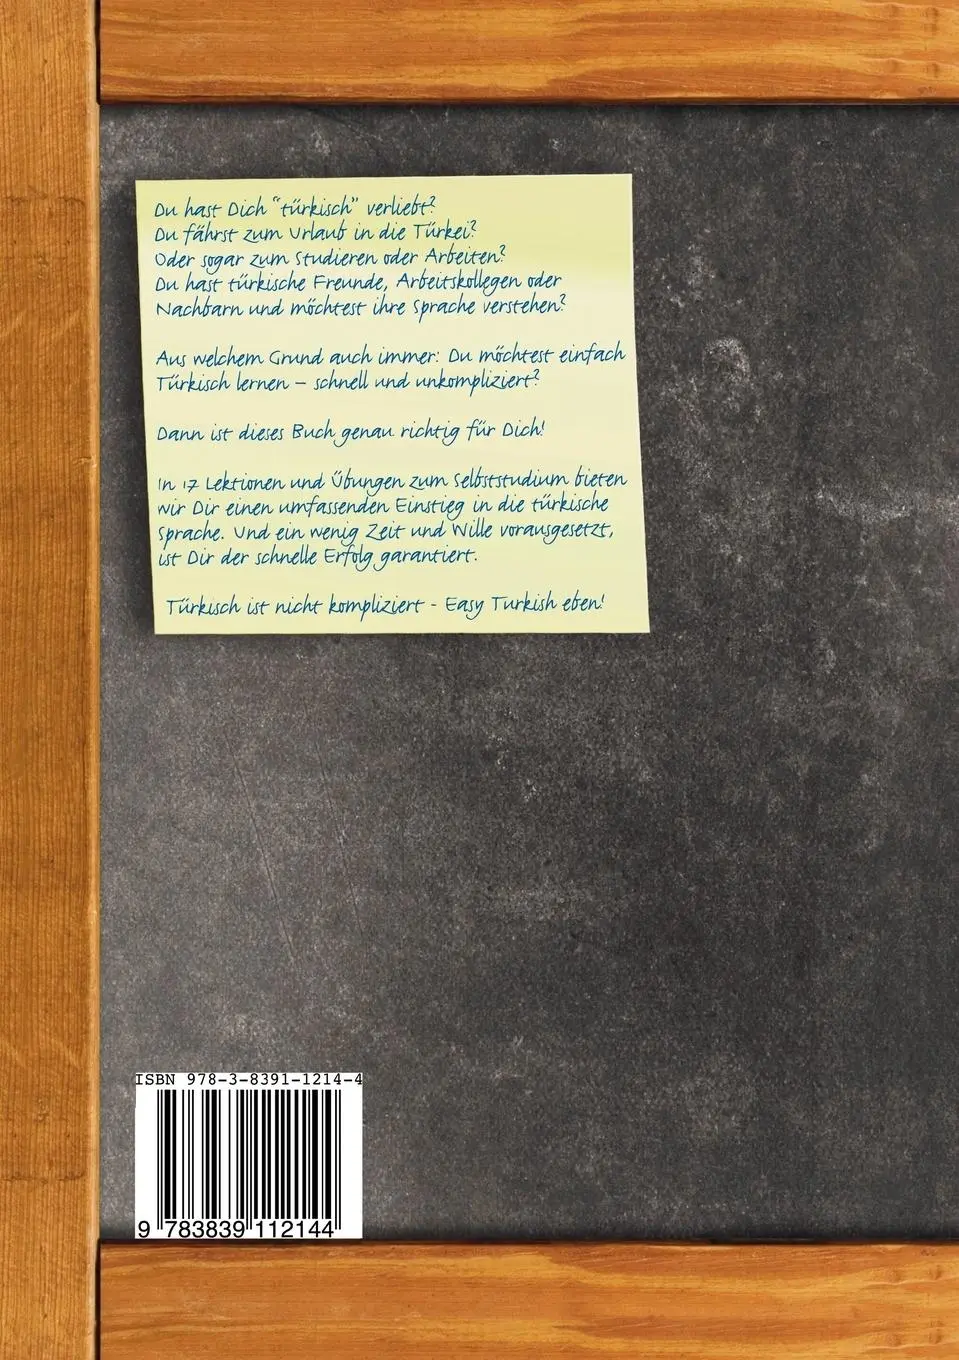 Du hast Dich "türkisch" verliebt?
Du fährst zum Urlaub in die Türkei?
Oder sogar zum Studieren oder Arbeiten?
Du hast türkische Freunde, Arbeitskollegen oder
Nachbarn und möchtest ihre Sprache verstehen?
Aus welchem Grund auch immer: Du möchtest einfach
Türkisch lernen – schnell und unkompliziert?
Dann ist dieses Buch genau richtig für Dich!
In 17 Lektionen und Übungen zum Selbststudium bieten
wir Dir einen umfassenden Einstieg in die türkische
Sprache. Und ein wenig Zeit und Wille vorausgesetzt,
ist Dir der schnelle Erfolg garantiert.
Türkisch ist nicht kompliziert - Easy Turkish eben!
ISBN 978-3-8391-1214-4
9 783839 112144